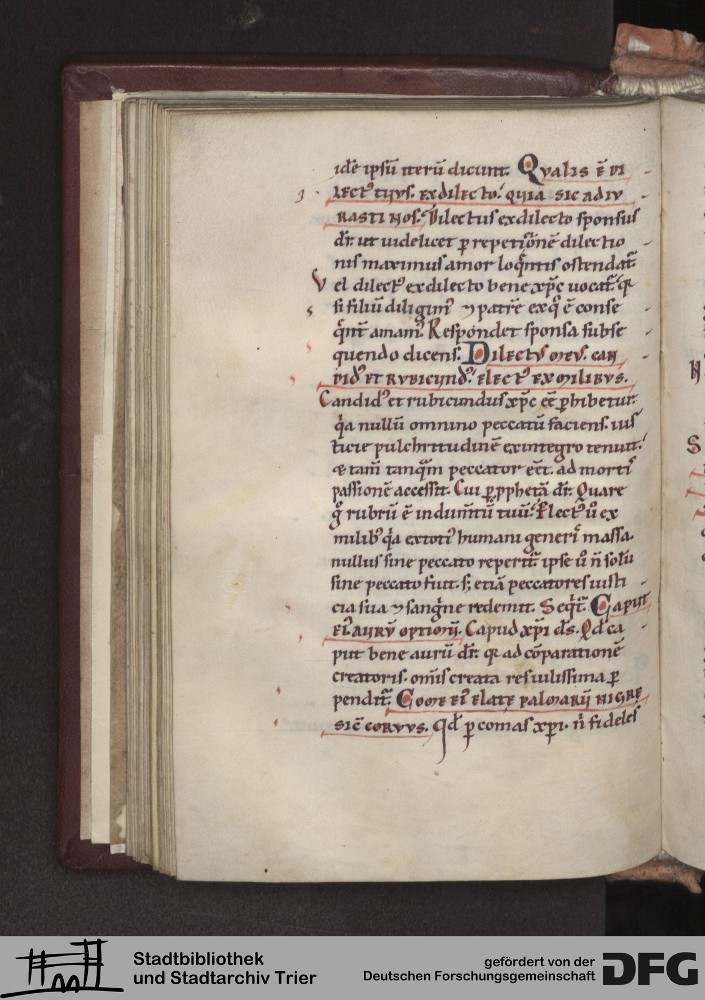 idē ipsū iterū dicunt. Qvalis ē di
lect᷒ tuus. ex dilecto. quia sic adiu
rasti nos. Dilectus ex dilecto sponsus
dr̄. ut uidelicet p repetitionē dilectio
nis maximus amor loq̄ntis ostendat᷑.
Vel dilect᷒ ex dilecto bene xp̄c uocat᷑. q̄
si filiū diligim᷒ ⁊ patrē ex q̊ ē conse
q̄nt᷑ amam᷒. Respondet sponsa subse
quendo dicens. Dilectus meus can
did᷒ et rubicund᷒. elect᷒ ex milibus.
Candid᷒ et rubicundus xp̄c eē phibetur.
q̊a nullū omnino peccatū faciens. ius
ticie pulchritudinē ex integro tenuit.
& tam̄ tanq̄m peccator eēt. ad mortis
passionē accessit. Cui p pphetā dr̄. Quare
g̊ rubrū ē indumtū tuū. Elect᷒ ū ex
milib᷒ q̊a ex toti᷒ humani generis massa.
nullus sine peccato repertus. ipse ū n̄ solū
sine peccato fuit. s; etiā peccatores iusti
cia sua ⁊ sanguine redemit. Seq̄t᷑. Caput
ei᷒ aurū optimū. Capud xp̄i d̄s. Qd̄ ca
put bene aurū dr̄. q̄ ad cōparationē
creatoris. om̄is creata res uilissima p
pendit᷑. Come ei᷒ elate palmarū nigre
sic̄ corvus. Qd̄ p comas xp̄i. n̄ fideles
Stadtbibliothek
und Stadtarchiv Trier
gefördert von der
Deutschen Forschungsgemeinschaft
DFG